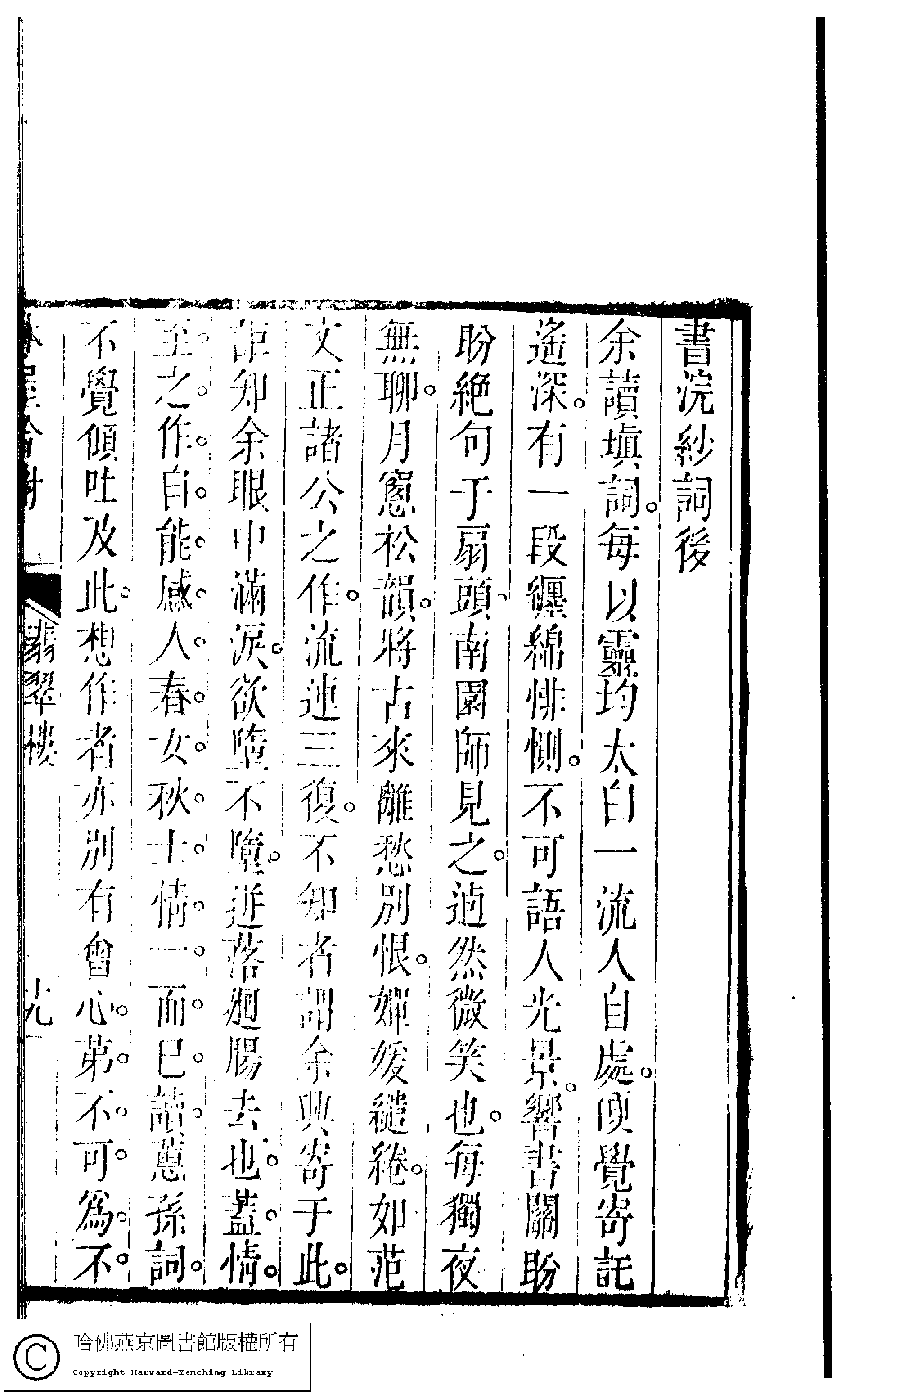 書浣紗詞後
余讀塡詞。每以靈均太白一流人自處。便覺寄託
遙深。有一段纏綿悱惻。不可語人光景。嚮書關盼
盼絕句于扇頭。南園師見之。逌然微笑也。每獨夜
無聊。月窻松韻。將古來離愁別恨。嬋媛繾綣。如范
文正諸公之作。流連三復。不知者謂余興寄于此。
詎知余眼中滿淚。欲墮不墮。迸落廻腸去也。蓋。情。
至。之。作。自。能。感。人。春。女。秋。士。情。一。而。已。讀。蕙孫詞。
不覺傾吐及此。想作者亦別有會心。第。不。可。爲。不。
翡翠樓
哈佛燕京圖書館版權所有
Copyright Harvard-Yenching Library